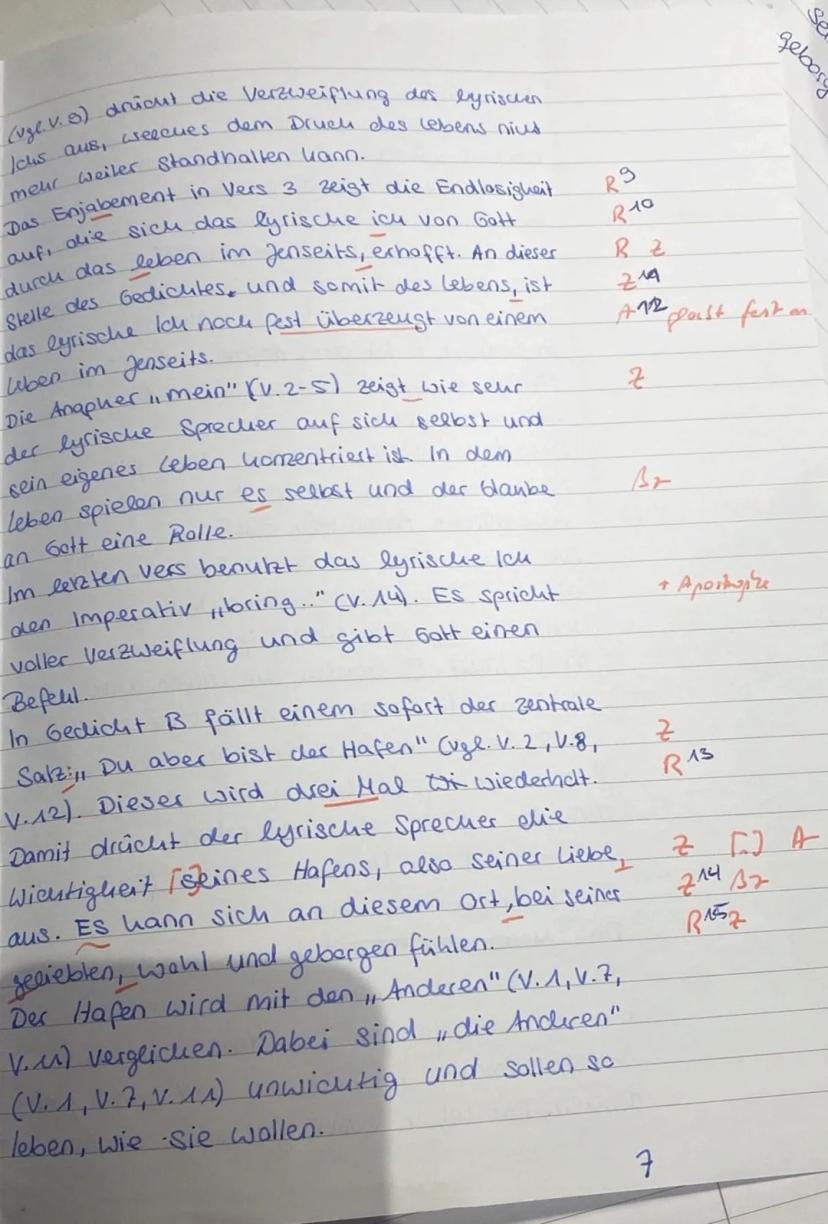 Se
geborg
(vgl. V. 8) drückt die Verzweiflung des lyrischen
Ichs aus, welches dem Druck des Lebens nicht
mehr weiter standhalten kann.
Das Enjabement in Vers 3 zeigt die Endlosigkeit R 9
auf, die sich das lyrische ich von Gott R 10
durch das leben im Jenseits, erhofft. An dieser R Z
Stelle des Gedichtes, und somit des Lebens, ist Z 11
das lyrische Ich noch fest überzeugt von einem A 12 glaubt fest an
Leben im Jenseits.
Die Anapher „mein" (V. 2-5) zeigt wie sehr Z
der lyrische Sprecher auf sich selbst und
sein eigenes Leben konzentriert ist. In dem
Leben spielen nur es selbst und der Glaube Bz
an Gott eine Rolle.
Im letzten Vers benutzt das lyrische Ich
den Imperativ „bring.." (V. 14). Es spricht + Apostrophe
voller Verzweiflung und gibt Gott einen
Befehl.
In Gedicht B fällt einem sofort der zentrale
Satz: „Du aber bist der Hafen" (vgl. V. 2, V. 8, Z
V. 12). Dieser wird drei Mal wiederholt. R 13
Damit drückt der lyrische Sprecher die
Wichtigkeit [seines Hafens, also seiner Liebe, Z [ ] A
aus. Es kann sich an diesem Ort, bei seiner Z 14 Bz
geliebten, wohl und geborgen fühlen. R 15 Z
Der Hafen wird mit den „Anderen" (V. 1, V. 7,
V. 11) verglichen. Dabei sind „die Anderen"
(V. 1, V. 7, V. 11) unwichtig und sollen so
leben, wie sie wollen.
7